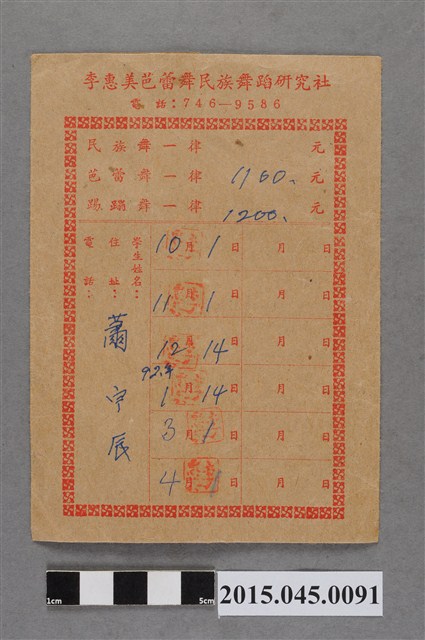 李惠美芭蕾舞民族舞蹈研究社
電話:746—9586
民族舞一律 元
芭蕾舞一律 1160、元
踢躂舞一律 1200、元
學生姓名:
住址:
電話:
蕭宇辰
10月1日 月 日
11月1日 月 日
12月14日 月 日
92年
1月14日 月 日
3月1日 月 日
4月1日 月 日
1cm 5cm
2015.045.0091